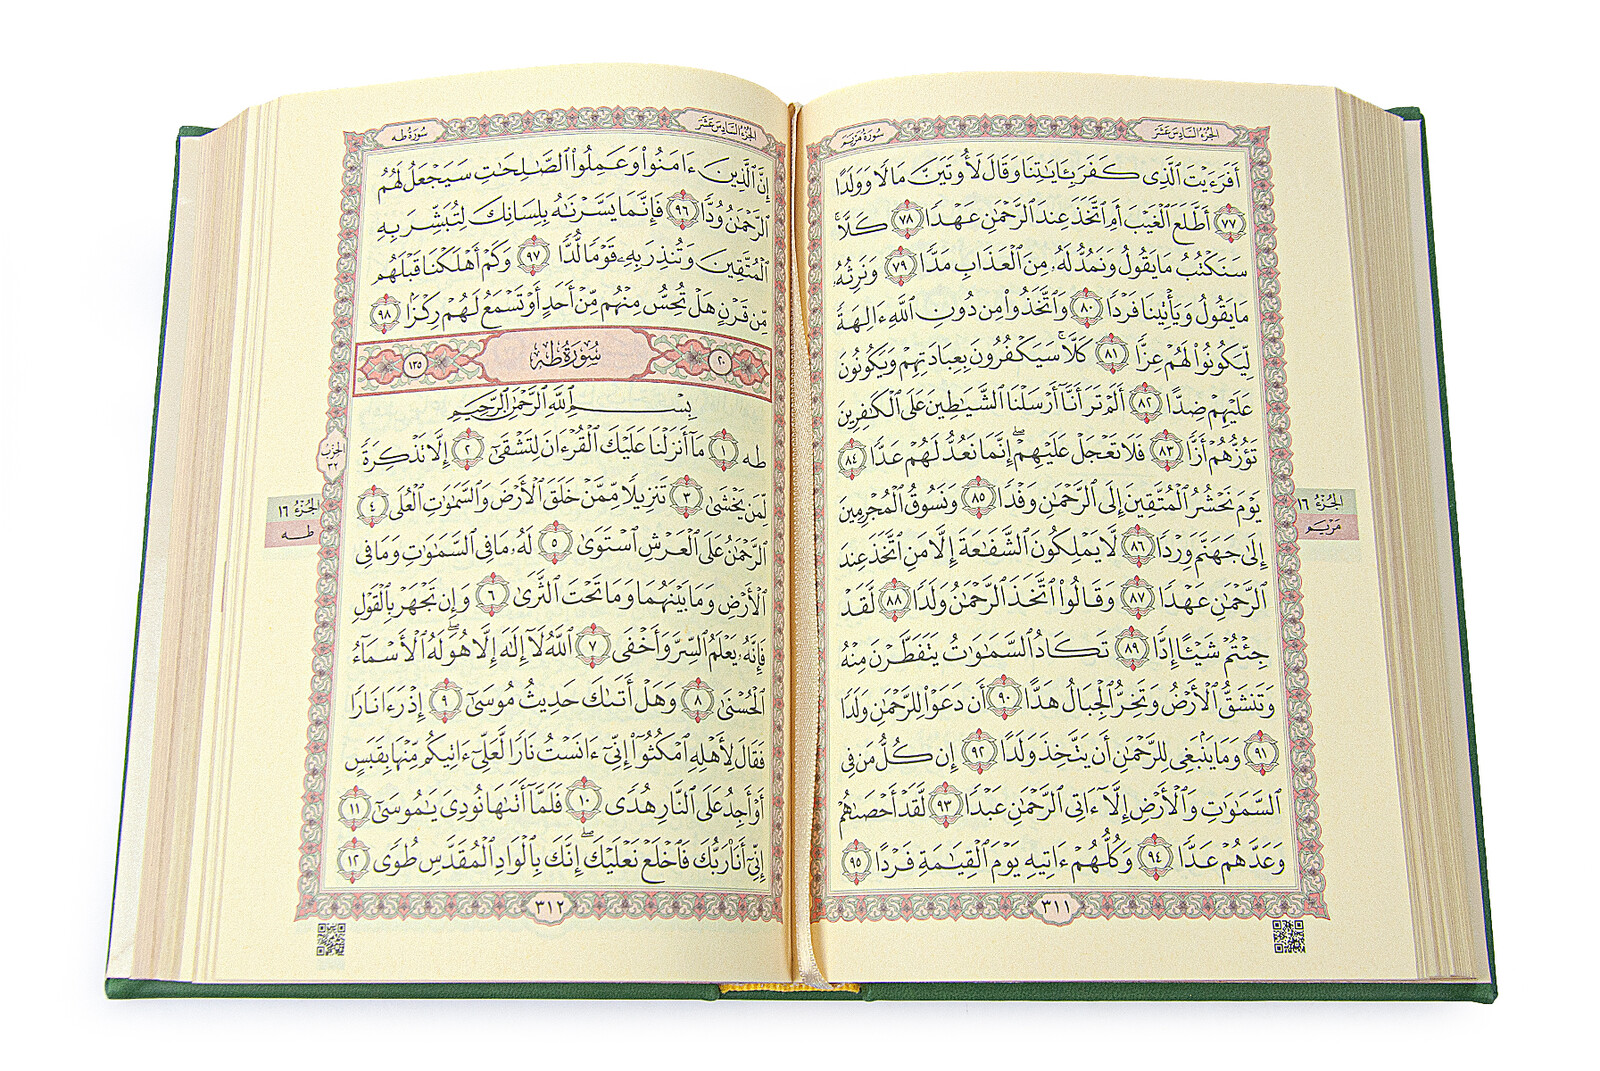 الجزء السادس عشر
سورة مريم
أَفَرَءَيْتَ ٱلَّذِى كَفَرَ بِـَٔايَـٰتِنَا وَقَالَ لَأُوتَيَنَّ مَالًا وَوَلَدًا
٧٧ أَطَّلَعَ ٱلْغَيْبَ أَمِ ٱتَّخَذَ عِندَ ٱلرَّحْمَـٰنِ عَهْدًا ٧٨ كَلَّا ۚ
سَنَكْتُبُ مَا يَقُولُ وَنَمُدُّ لَهُۥ مِنَ ٱلْعَذَابِ مَدًّا ٧٩ وَنَرِثُهُۥ
مَا يَقُولُ وَيَأْتِينَا فَرْدًا ٨٠ وَٱتَّخَذُوا۟ مِن دُونِ ٱللَّهِ ءَالِهَةً
لِّيَكُونُوا۟ لَهُمْ عِزًّا ٨١ كَلَّا ۚ سَيَكْفُرُونَ بِعِبَادَتِهِمْ وَيَكُونُونَ
عَلَيْهِمْ ضِدًّا ٨٢ أَلَمْ تَرَ أَنَّآ أَرْسَلْنَا ٱلشَّيَـٰطِينَ عَلَى ٱلْكَـٰفِرِينَ
تَؤُزُّهُمْ أَزًّا ٨٣ فَلَا تَعْجَلْ عَلَيْهِمْ ۖ إِنَّمَا نَعُدُّ لَهُمْ عَدًّا ٨٤
يَوْمَ نَحْشُرُ ٱلْمُتَّقِينَ إِلَى ٱلرَّحْمَـٰنِ وَفْدًا ٨٥ وَنَسُوقُ ٱلْمُجْرِمِينَ
إِلَىٰ جَهَنَّمَ وِرْدًا ٨٦ لَّا يَمْلِكُونَ ٱلشَّفَـٰعَةَ إِلَّا مَنِ ٱتَّخَذَ عِندَ
ٱلرَّحْمَـٰنِ عَهْدًا ٨٧ وَقَالُوا۟ ٱتَّخَذَ ٱلرَّحْمَـٰنُ وَلَدًا ٨٨ لَّقَدْ
جِئْتُمْ شَيْـًٔا إِدًّا ٨٩ تَكَادُ ٱلسَّمَـٰوَٰتُ يَتَفَطَّرْنَ مِنْهُ
وَتَنشَقُّ ٱلْأَرْضُ وَتَخِرُّ ٱلْجِبَالُ هَدًّا ٩٠ أَن دَعَوْا۟ لِلرَّحْمَـٰنِ وَلَدًا
٩١ وَمَا يَنۢبَغِى لِلرَّحْمَـٰنِ أَن يَتَّخِذَ وَلَدًا ٩٢ إِن كُلُّ مَن فِى
ٱلسَّمَـٰوَٰتِ وَٱلْأَرْضِ إِلَّآ ءَاتِى ٱلرَّحْمَـٰنِ عَبْدًا ٩٣ لَّقَدْ أَحْصَىٰهُمْ
وَعَدَّهُمْ عَدًّا ٩٤ وَكُلُّهُمْ ءَاتِيهِ يَوْمَ ٱلْقِيَـٰمَةِ فَرْدًا ٩٥
الجزء ١٦
مريم
٣١١
الجزء السادس عشر
سورة طه
إِنَّ ٱلَّذِينَ ءَامَنُوا۟ وَعَمِلُوا۟ ٱلصَّـٰلِحَـٰتِ سَيَجْعَلُ لَهُمُ
ٱلرَّحْمَـٰنُ وُدًّا ٩٦ فَإِنَّمَا يَسَّرْنَـٰهُ بِلِسَانِكَ لِتُبَشِّرَ بِهِ
ٱلْمُتَّقِينَ وَتُنذِرَ بِهِۦ قَوْمًا لُّدًّا ٩٧ وَكَمْ أَهْلَكْنَا قَبْلَهُم
مِّن قَرْنٍ هَلْ تُحِسُّ مِنْهُم مِّنْ أَحَدٍ أَوْ تَسْمَعُ لَهُمْ رِكْزًۢا ٩٨
٢٠ سورة طه ١٣٥
بِسْمِ ٱللَّهِ ٱلرَّحْمَـٰنِ ٱلرَّحِيمِ
طه ١ مَآ أَنزَلْنَا عَلَيْكَ ٱلْقُرْءَانَ لِتَشْقَىٰٓ ٢ إِلَّا تَذْكِرَةً
لِّمَن يَخْشَىٰ ٣ تَنزِيلًا مِّمَّنْ خَلَقَ ٱلْأَرْضَ وَٱلسَّمَـٰوَٰتِ ٱلْعُلَى ٤
ٱلرَّحْمَـٰنُ عَلَى ٱلْعَرْشِ ٱسْتَوَىٰ ٥ لَهُۥ مَا فِى ٱلسَّمَـٰوَٰتِ وَمَا فِى
ٱلْأَرْضِ وَمَا بَيْنَهُمَا وَمَا تَحْتَ ٱلثَّرَىٰ ٦ وَإِن تَجْهَرْ بِٱلْقَوْلِ
فَإِنَّهُۥ يَعْلَمُ ٱلسِّرَّ وَأَخْفَى ٧ ٱللَّهُ لَآ إِلَـٰهَ إِلَّا هُوَ ۖ لَهُ ٱلْأَسْمَآءُ
ٱلْحُسْنَىٰ ٨ وَهَلْ أَتَىٰكَ حَدِيثُ مُوسَىٰٓ ٩ إِذْ رَءَا نَارًا
فَقَالَ لِأَهْلِهِ ٱمْكُثُوٓا۟ إِنِّىٓ ءَانَسْتُ نَارًا لَّعَلِّىٓ ءَاتِيكُم مِّنْهَا بِقَبَسٍ
أَوْ أَجِدُ عَلَى ٱلنَّارِ هُدًى ١٠ فَلَمَّآ أَتَىٰهَا نُودِىَ يَـٰمُوسَىٰٓ ١١
إِنِّىٓ أَنَا۠ رَبُّكَ فَٱخْلَعْ نَعْلَيْكَ ۖ إِنَّكَ بِٱلْوَادِ ٱلْمُقَدَّسِ طُوًى ١٢
الحزب
٣٢
الجزء ١٦
طه
٣١٢